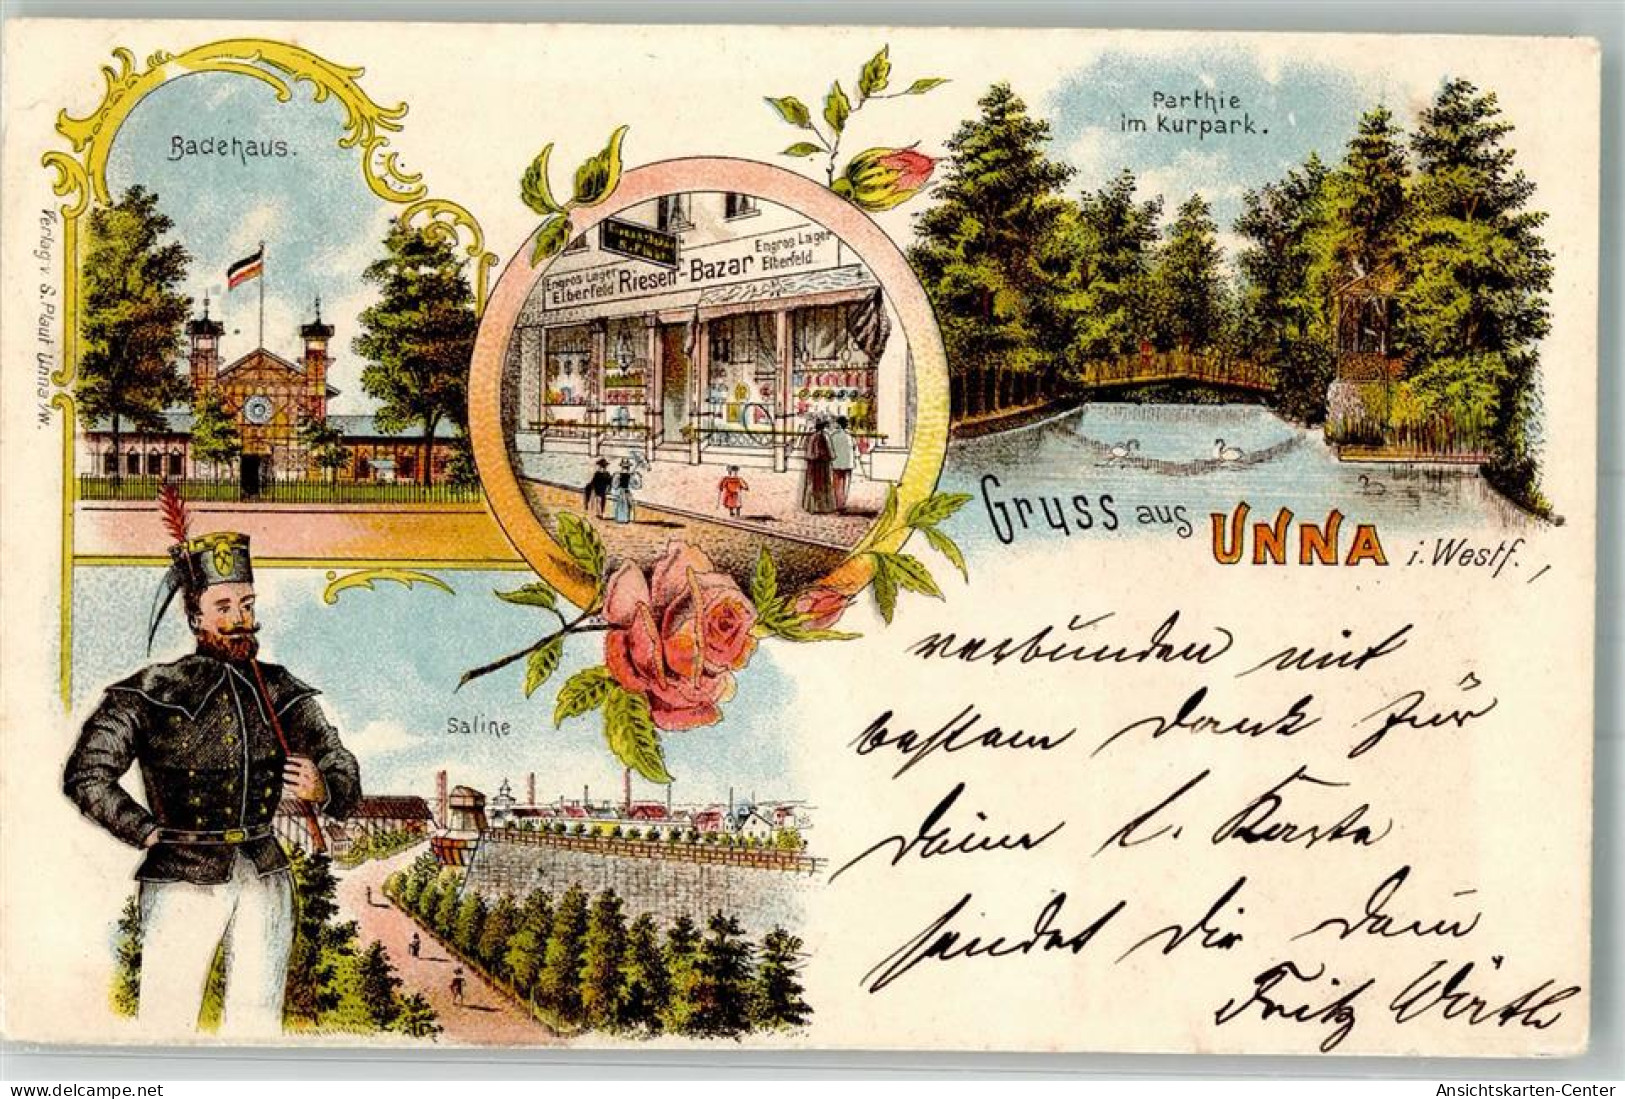 Badehaus.
Verlag v. S. Plaut Unna i/W.
Engros Lager
Elberfeld
Riesen-Bazar
Engros Lager
Elberfeld
Parthie
im Kurpark.
Gruss aus UNNA i. Westf.,
Saline
verbunden mit
bestem Dank für
Deine l. Karte
sendet Dir Dein
Fritz Wirth
Ansichtskarten-Center